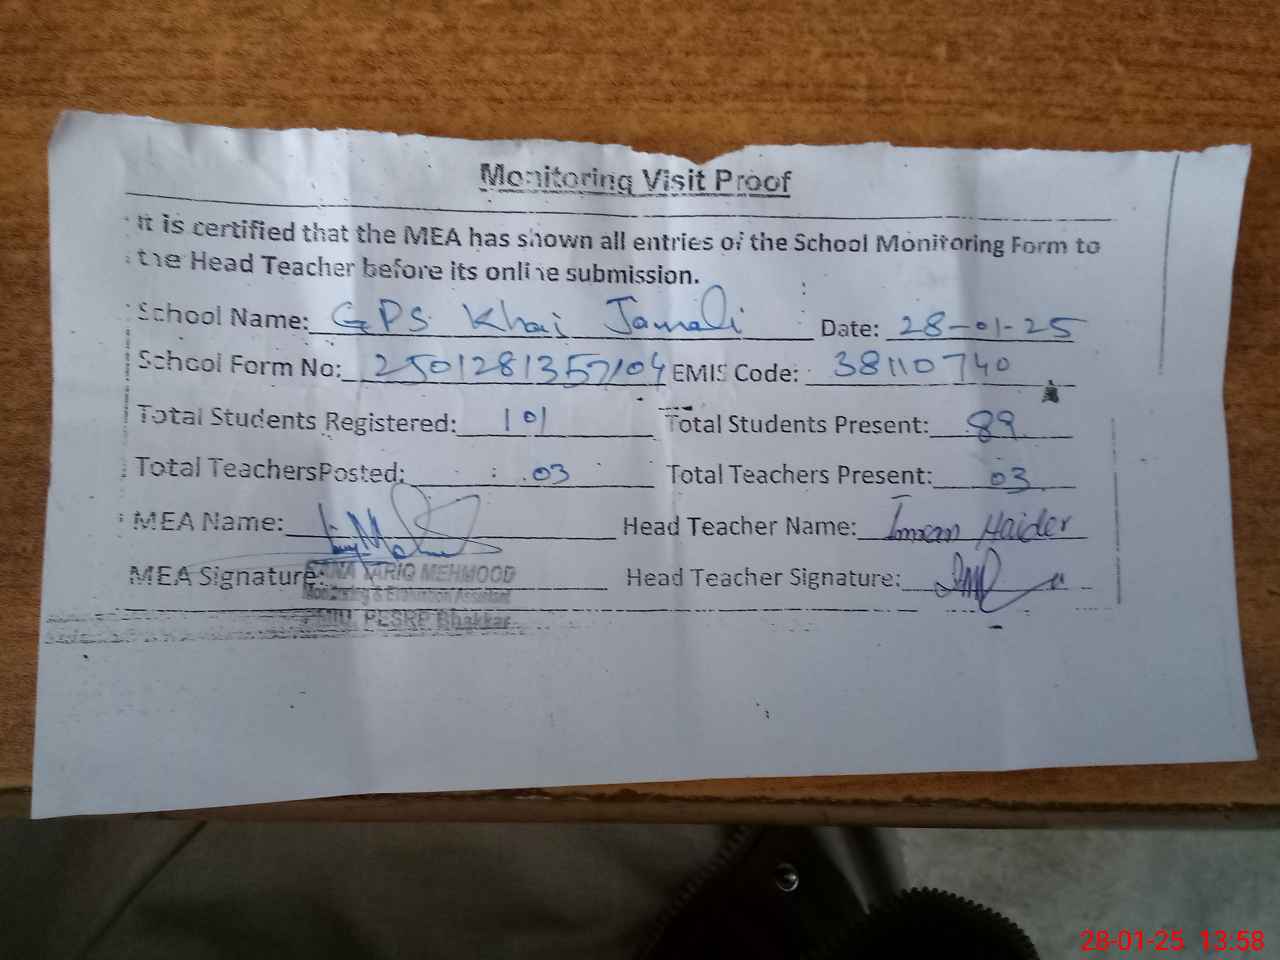 Monitoring Visit Proof
It is certified that the MEA has shown all entries of the School Monitoring Form to
the Head Teacher before its online submission.
School Name: GPS Khai Jamali Date: 28-01-25
School Form No: 2501281357104 EMIS Code: 38110740
Total Students Registered: 101 Total Students Present: 89
Total TeachersPosted: 03 Total Teachers Present: 03
MEA Name: Head Teacher Name: Imran Haider
MEA Signature: Head Teacher Signature:
TARIQ MEHMOOD
Monitoring & Evaluation Assistant
PMIU, PESRP Bhakkar
28-01-25 13:58